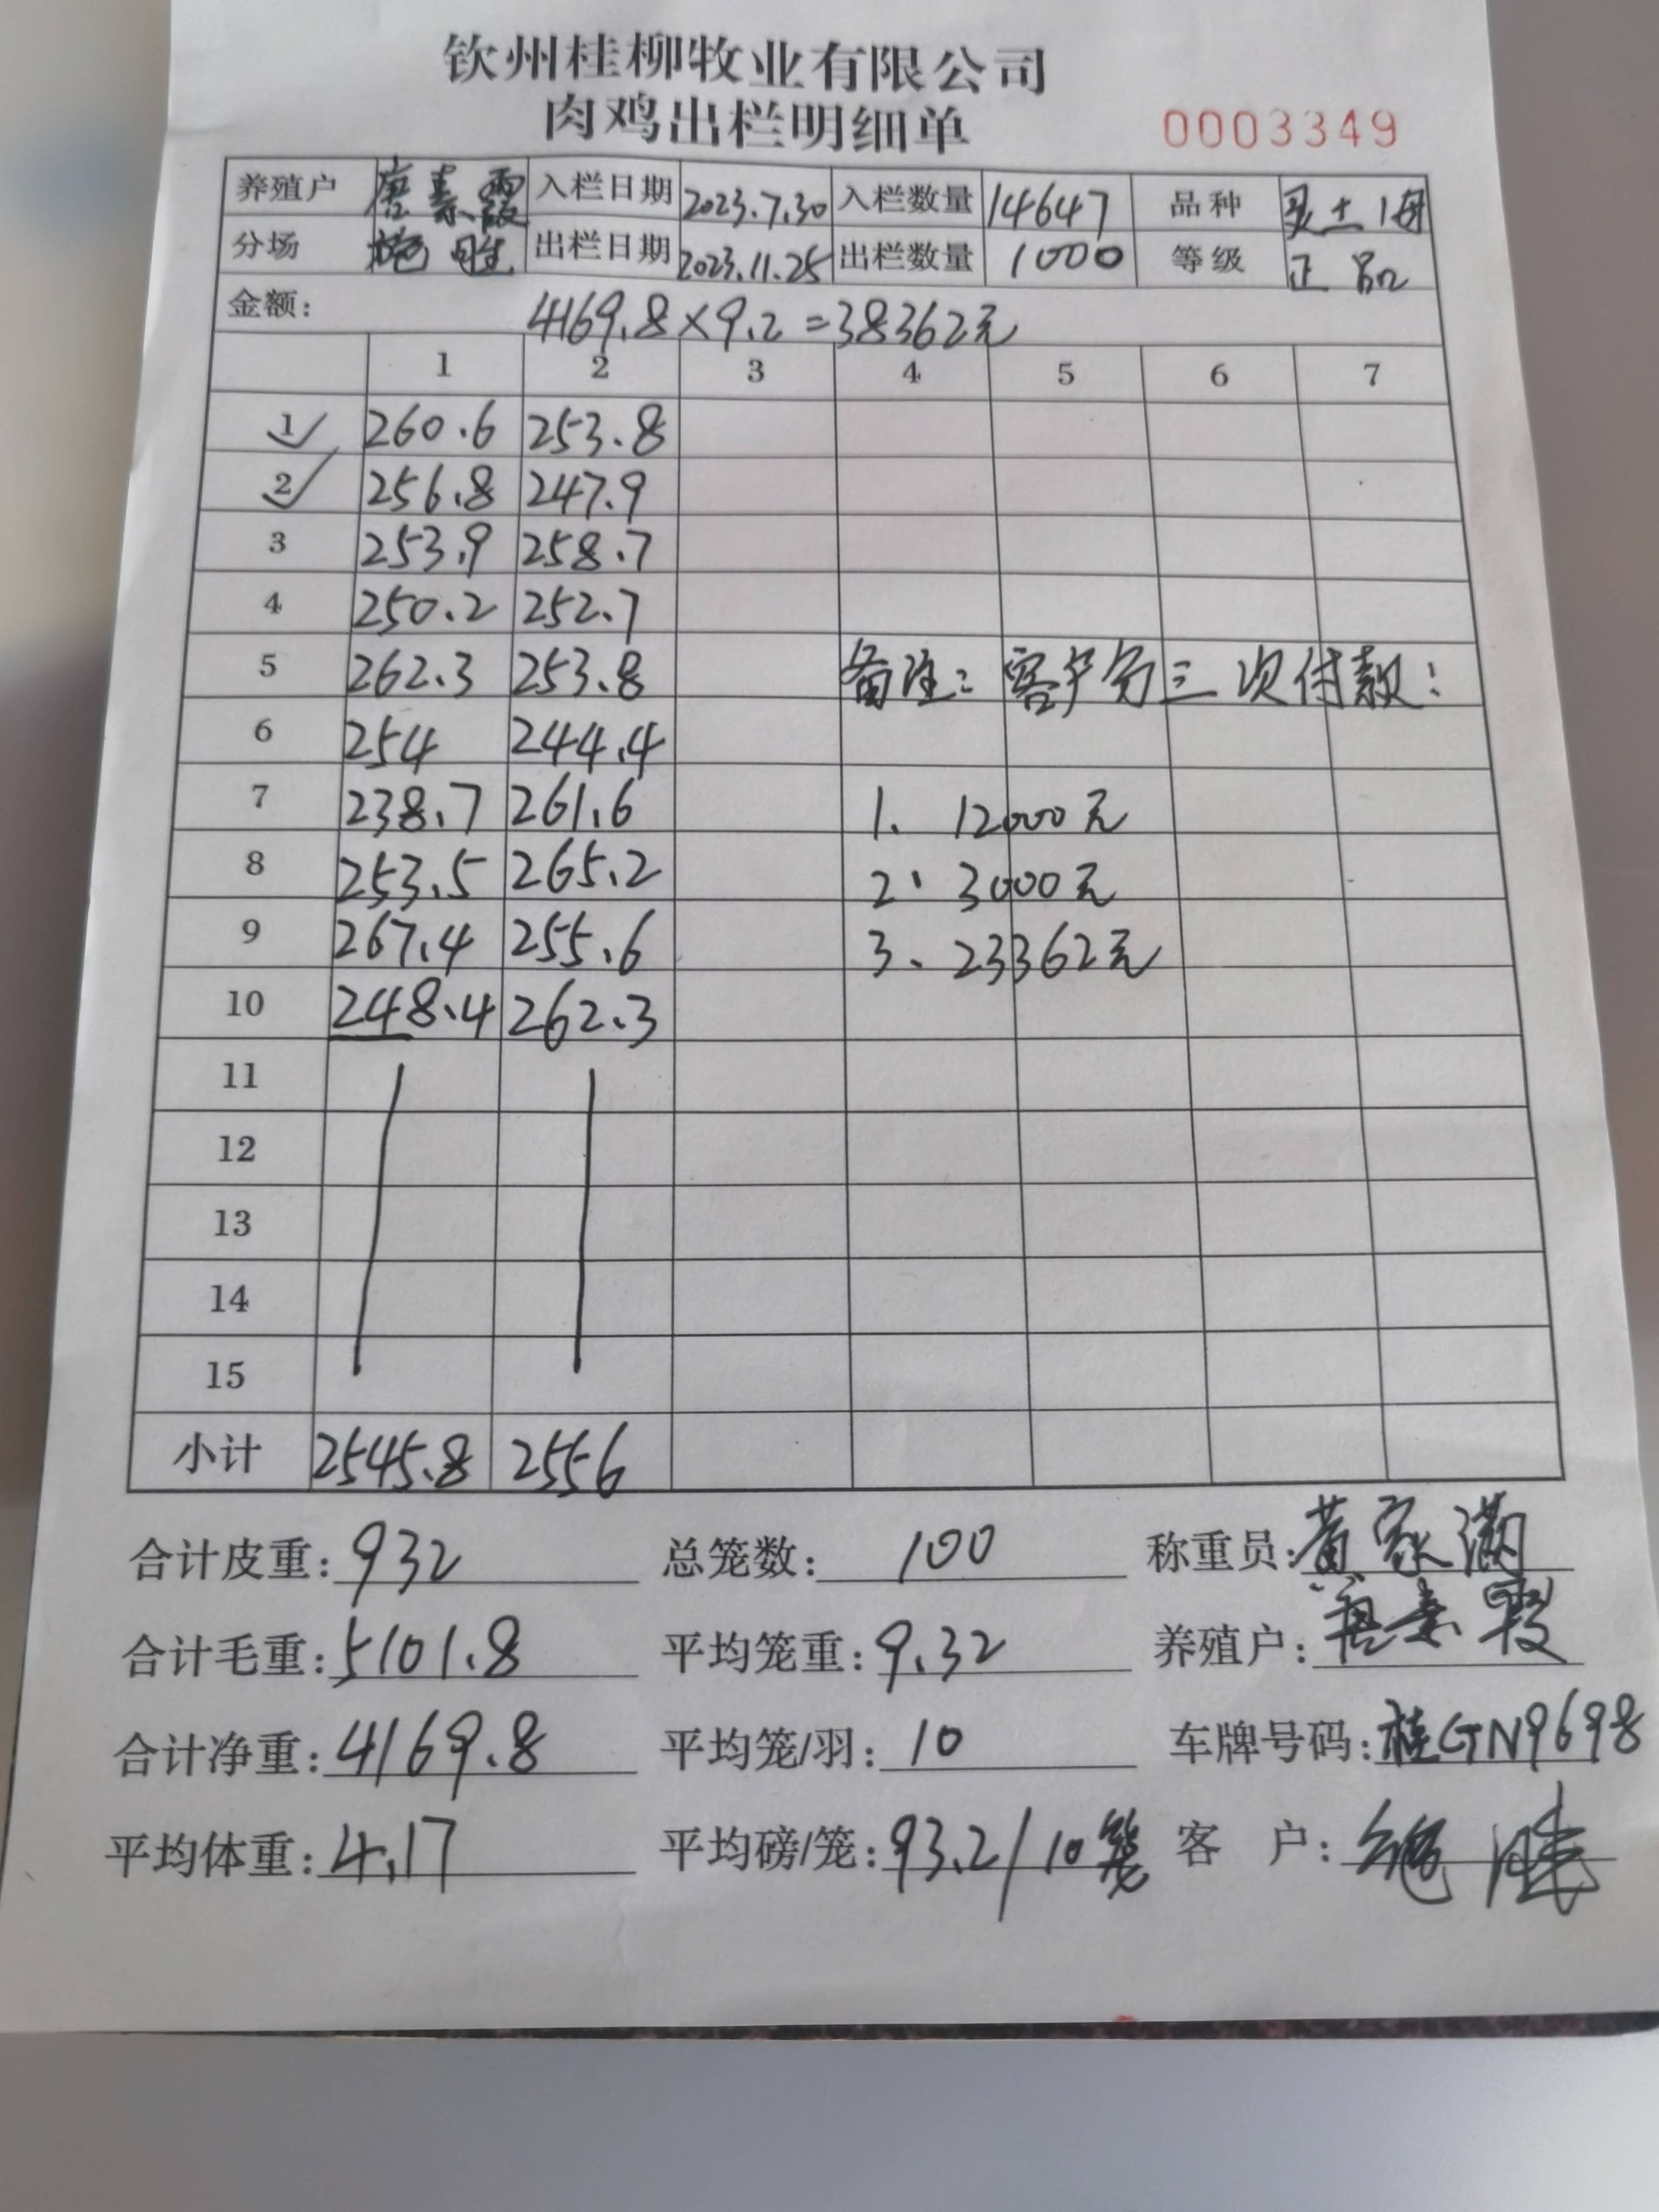 钦州桂柳牧业有限公司
肉鸡出栏明细单 0003349
养殖户 唐素霞 入栏日期 2023.7.30 入栏数量 14647 品种 灵土1母
分场 出栏日期 2023.11.25 出栏数量 1000 等级 正品
金额: 4169.8×9.2=38362元
1 2 3 4 5 6 7
1 260.6 253.8
2 256.8 247.9
3 253.9 258.7
4 250.2 252.7
5 262.3 253.8 备注: 客户分三次付款:
6 254 244.4
7 238.7 261.6 1. 12000元
8 253.5 265.2 2. 3000元
9 267.4 255.6 3. 23362元
10 248.4 262.3
11
12
13
14
15
小计 2545.8 2556
合计皮重: 932 总笼数: 100 称重员: 黄家满
合计毛重: 5101.8 平均笼重: 9.32 养殖户: 唐素霞
合计净重: 4169.8 平均笼/羽: 10 车牌号码: 桂GN9698
平均体重: 4.17 平均磅/笼: 93.2/10笼 客 户: